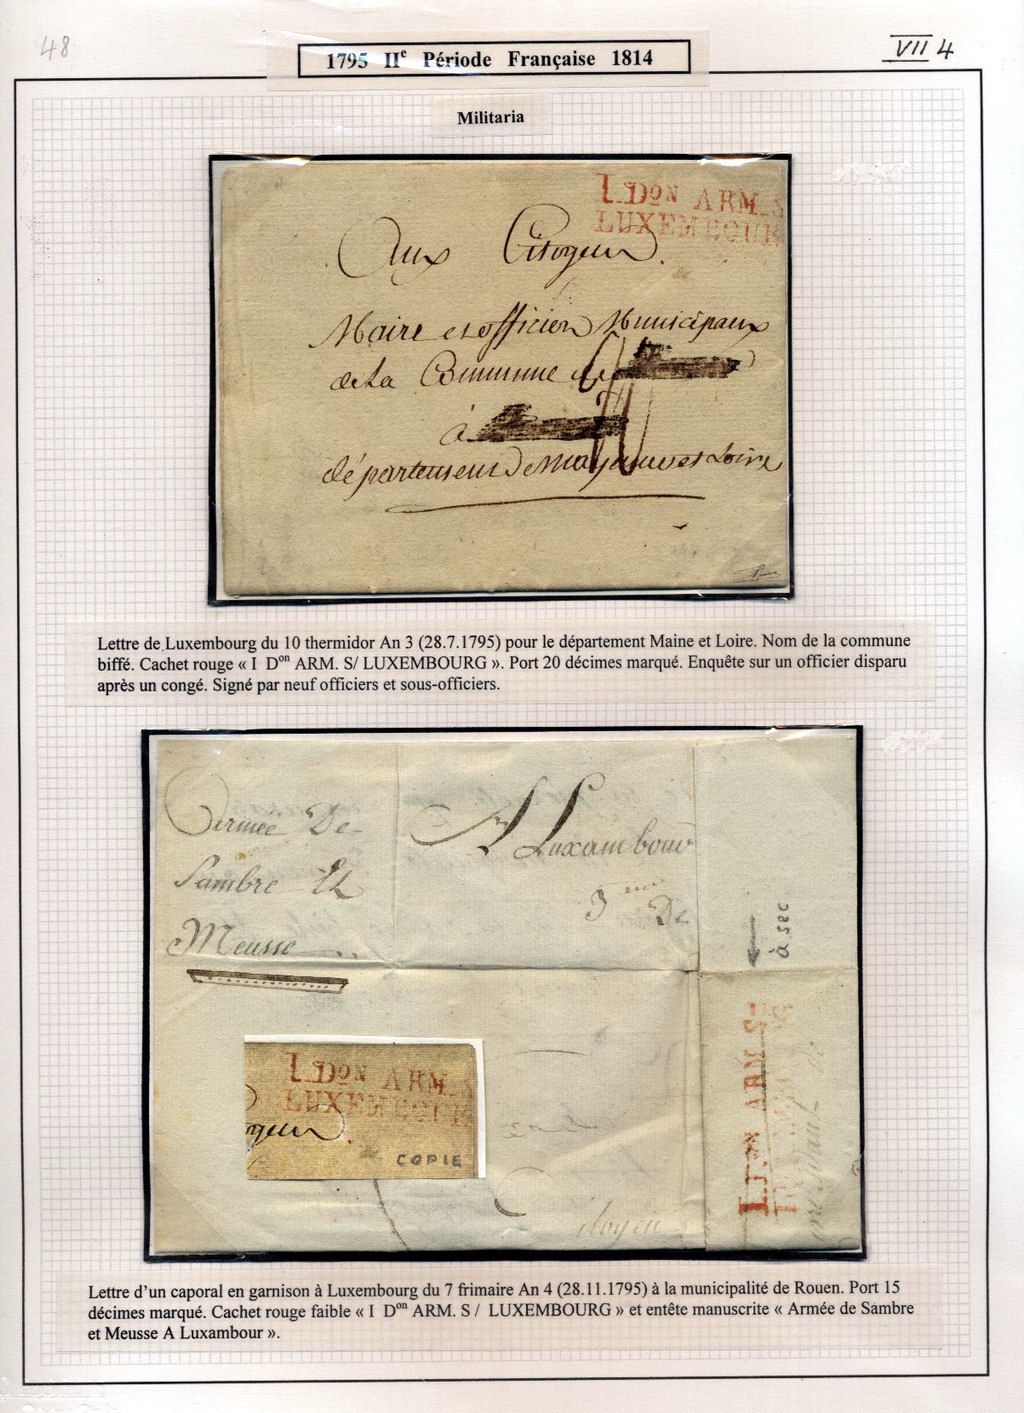 48
VII 4
1795 IIe Période Française 1814
Militaria
I.Don ARM.S
LUXEMBOUR
Aux Citoyen
Maire et officiers Municipaux
de la Commune de
à
département de mayenne et Loire
Lettre de Luxembourg du 10 thermidor An 3 (28.7.1795) pour le département Maine et Loire. Nom de la commune
biffé. Cachet rouge « I Don ARM. S/ LUXEMBOURG ». Port 20 décimes marqué. Enquête sur un officier disparu
après un congé. Signé par neuf officiers et sous-officiers.
Armée De
Sambre Et
Meusse
A Luxambour
3 eme De
à sec
I.Don ARM.S-
I.Don ARM.S
LUXEMBOUR
COPIE
Citoyen
Lettre d’un caporal en garnison à Luxembourg du 7 frimaire An 4 (28.11.1795) à la municipalité de Rouen. Port 15
décimes marqué. Cachet rouge faible « I Don ARM. S / LUXEMBOURG » et entête manuscrite « Armée de Sambre
et Meusse A Luxambour ».